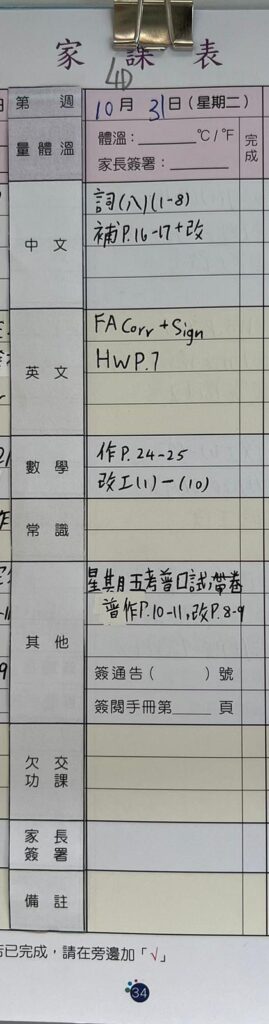 家課表
4D
第 週 10月31日(星期二)
量體溫 體溫:______℃/℉ 完成
家長簽署:______
中文 詞(八)(1-8)
補P.16-17+改
英文 FA Corr + Sign
HW P.7
數學 作P.24-25
改工(1)-(10)
常識
其他 星期五考普口試,帶卷
普作P.10-11,改P.8-9
簽通告( )號
簽閱手冊第____頁
欠交功課
家長簽署
備註
已完成,請在旁邊加「√」
34